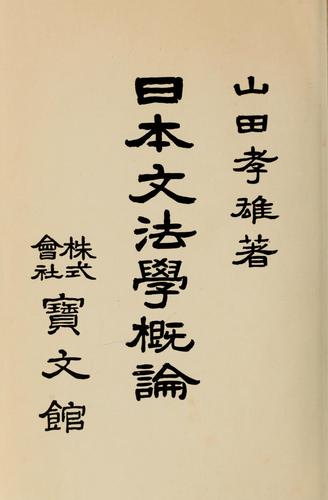 山田孝雄著
日本文法學概論
株式
會社
寶文館